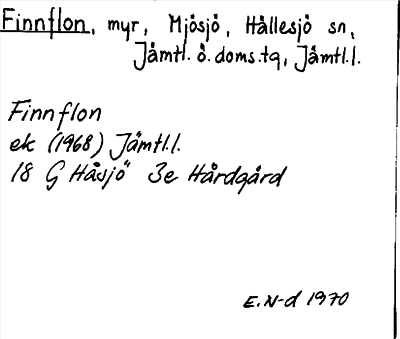 Finnflon, myr, Mjösjö, Hällesjö sn,
Jämtl. ö. doms.tg, Jämtl.l.
Finnflon
ek (1968) Jämtl.l.
18 G Håsjö 3e Hårdgård
E.N-d 1970